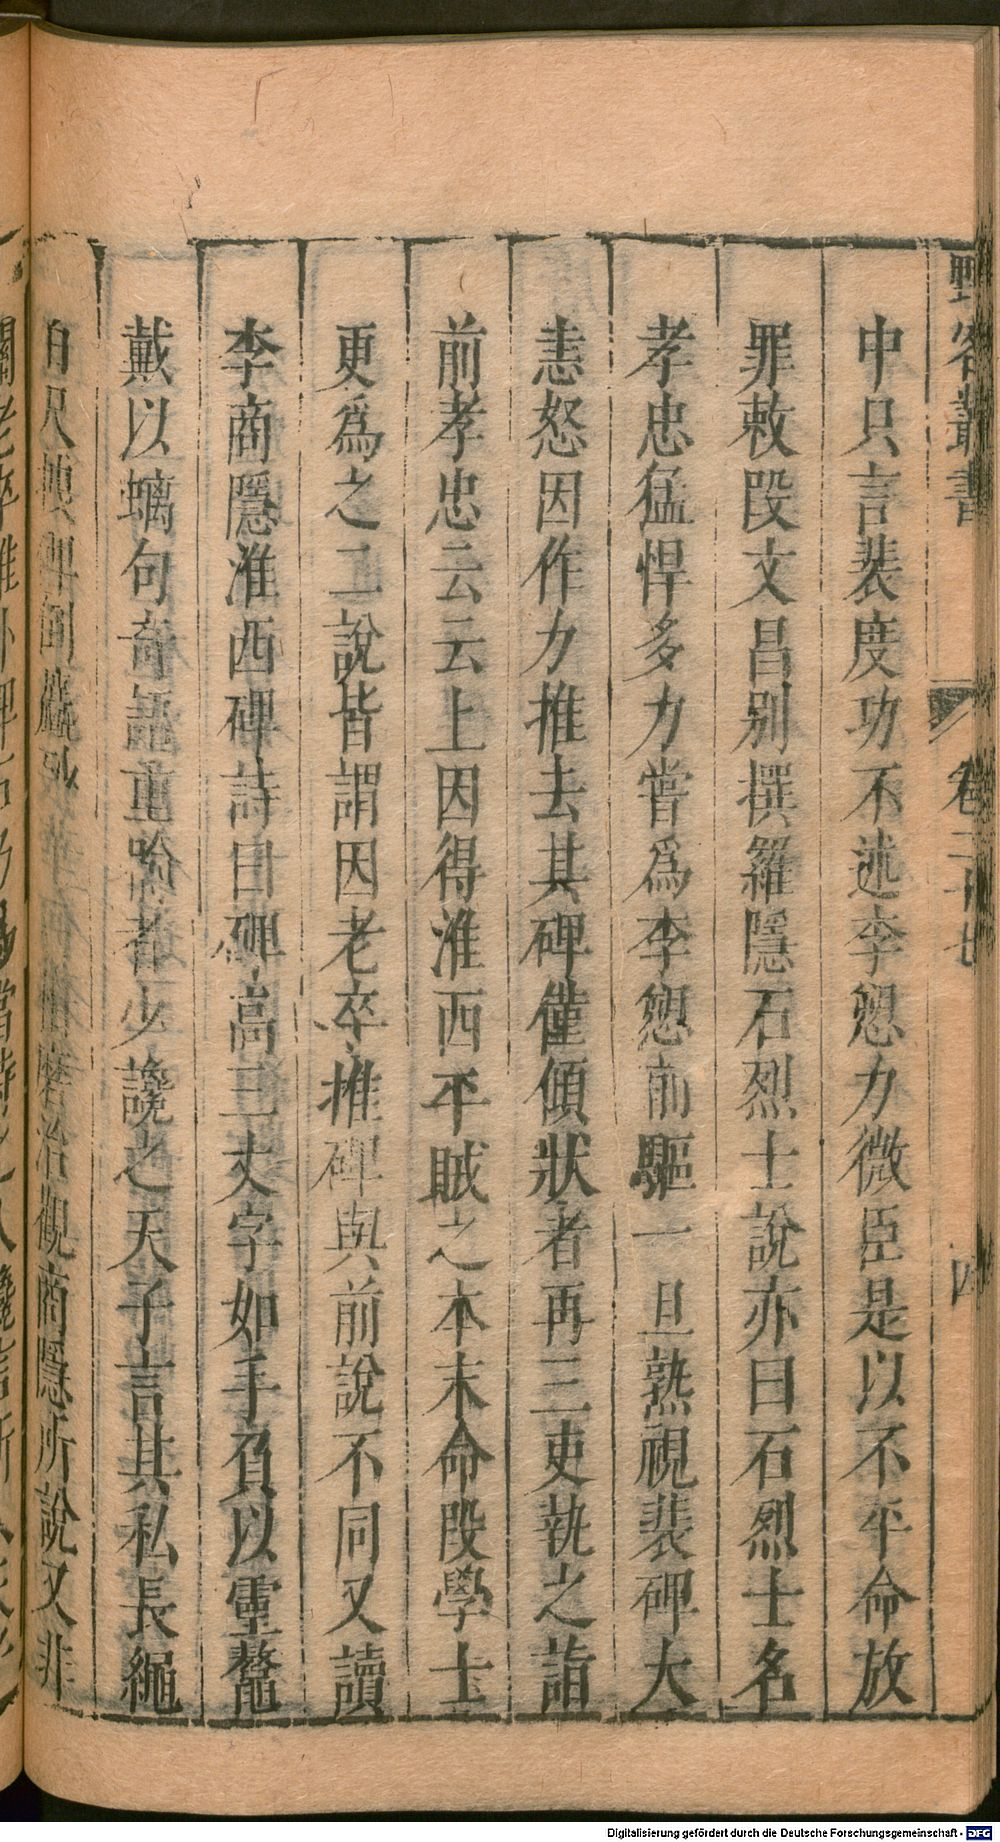 野客叢書
卷二十七
四
中只言裴度功不述李愬力微臣是以不平命放
罪敕段文昌别撰羅隱石烈士說亦曰石烈士名
孝忠猛悍多力嘗爲李愬前驅一旦熟視裴碑大
恚怒因作力推去其碑僅傾狀者再三吏執之詣
前孝忠云云上因得淮西平賊之本末命段學士
更爲之二說皆謂因老卒推碑與前說不同又讀
李商隱淮西碑詩曰碑高三丈字如手負以靈鼇
戴以螭句奇語重喻者少讒之天子言其私長繩
百尺拽碑倒麤砂 磨治觀商隱所說又非
Digitalisierung gefördert durch die Deutsche Forschungsgemeinschaft - DFG